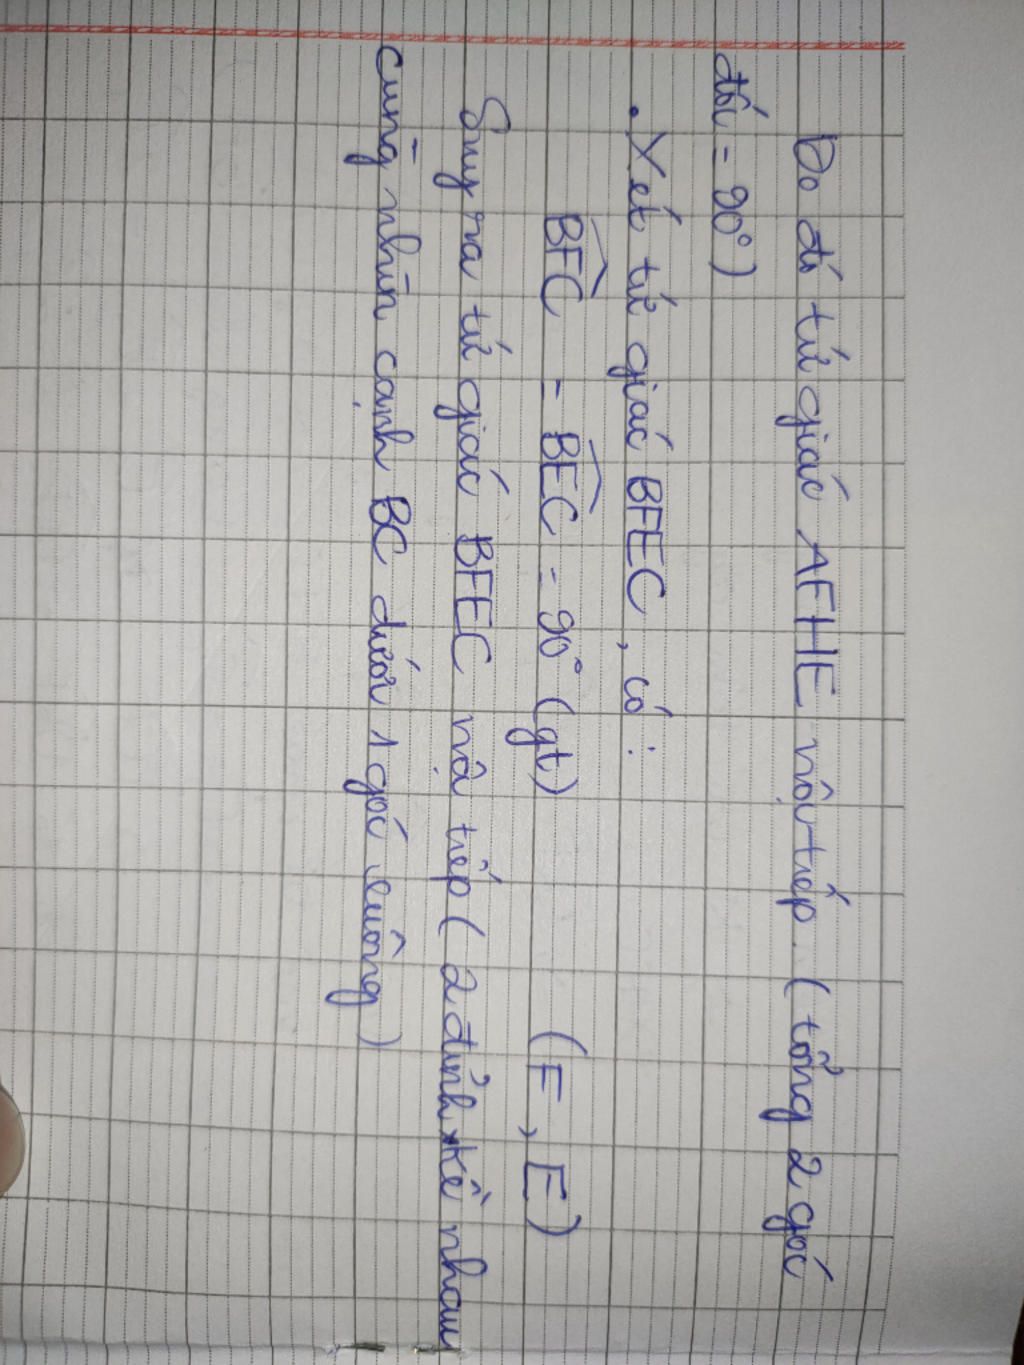 Do đó tứ giác AFHE nội tiếp. (tổng 2 góc
đối = 90°)
. Xét tứ giác BFEC, có :
BFC = BEC = 90° (gt) (F, E)
Suy ra tứ giác BFEC nộ tiếp ( 2 đỉnh kề nhau
cùng nhìn cạnh BC dưới 1 góc vuông )